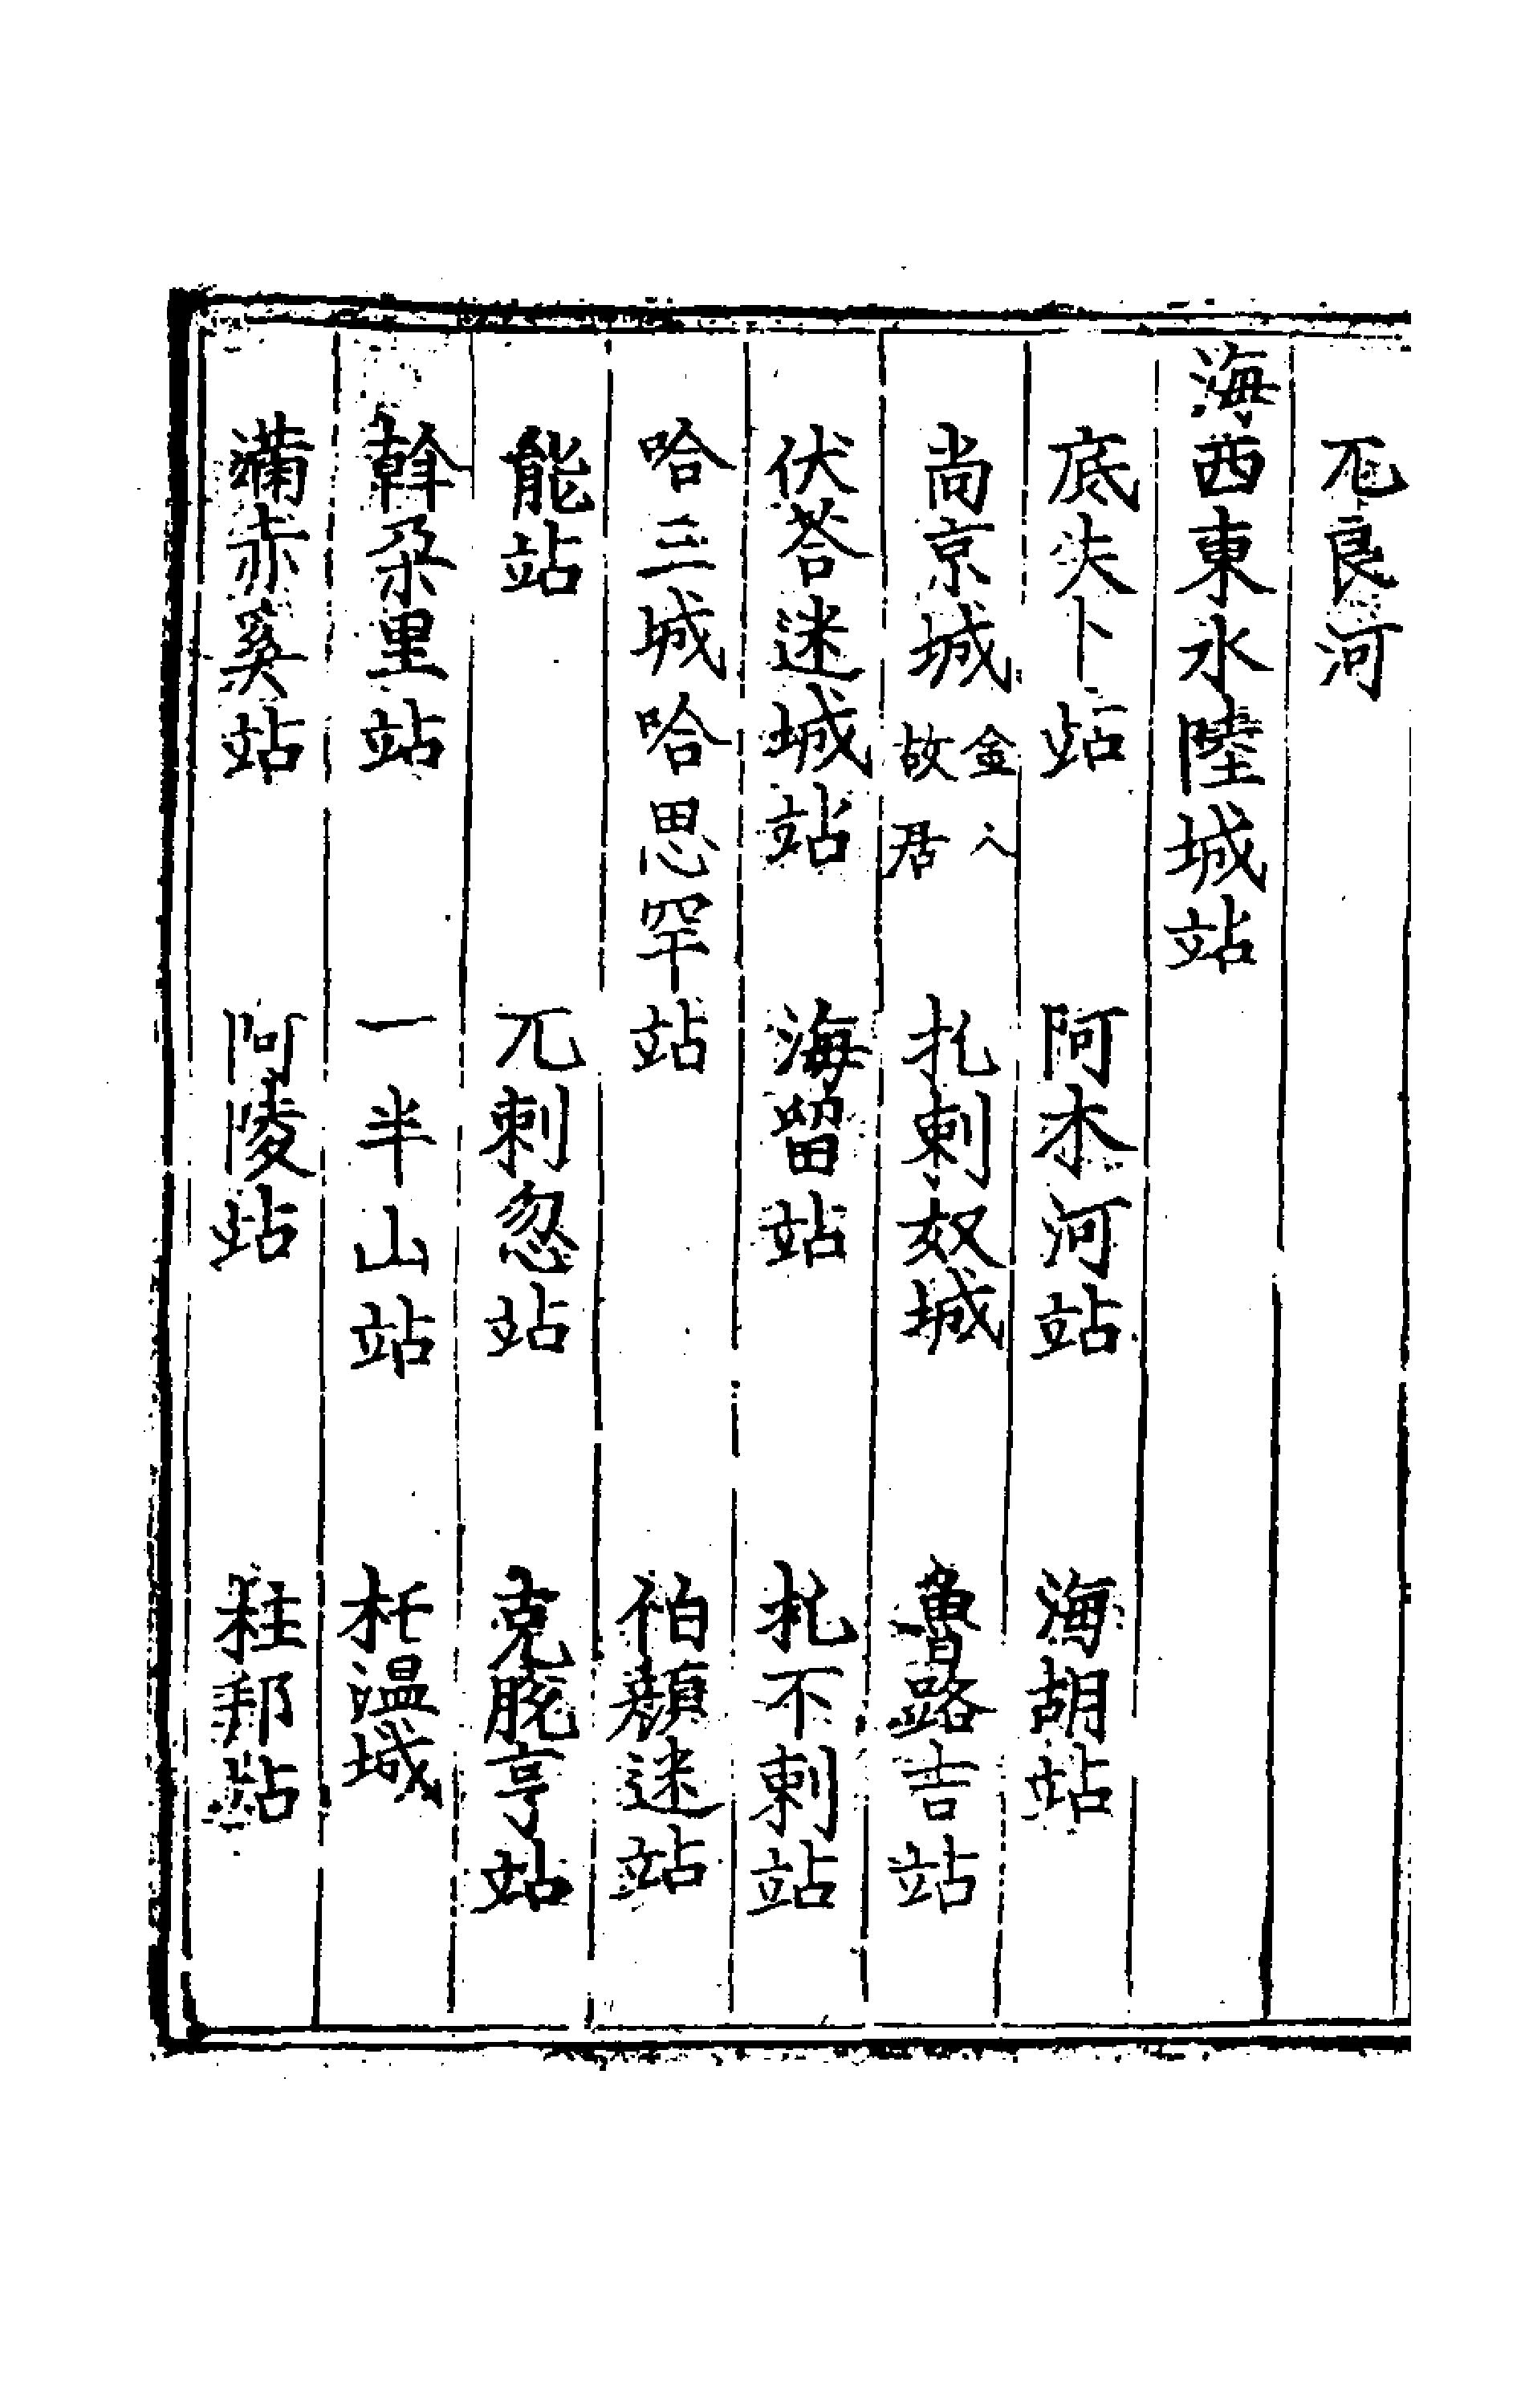 兀良河
海西東水陸城站
底失卜站 阿木河站 海胡站
尚京城金人故居 扎剌奴城 魯路吉站
伏荅迷城站 海留站 扎不剌站
哈三城哈思罕站 伯顏迷站
能站 兀剌忽站 克脫亨站
斡朶里站 一半山站 托溫城
滿赤奚站 阿陵站 柱邦站